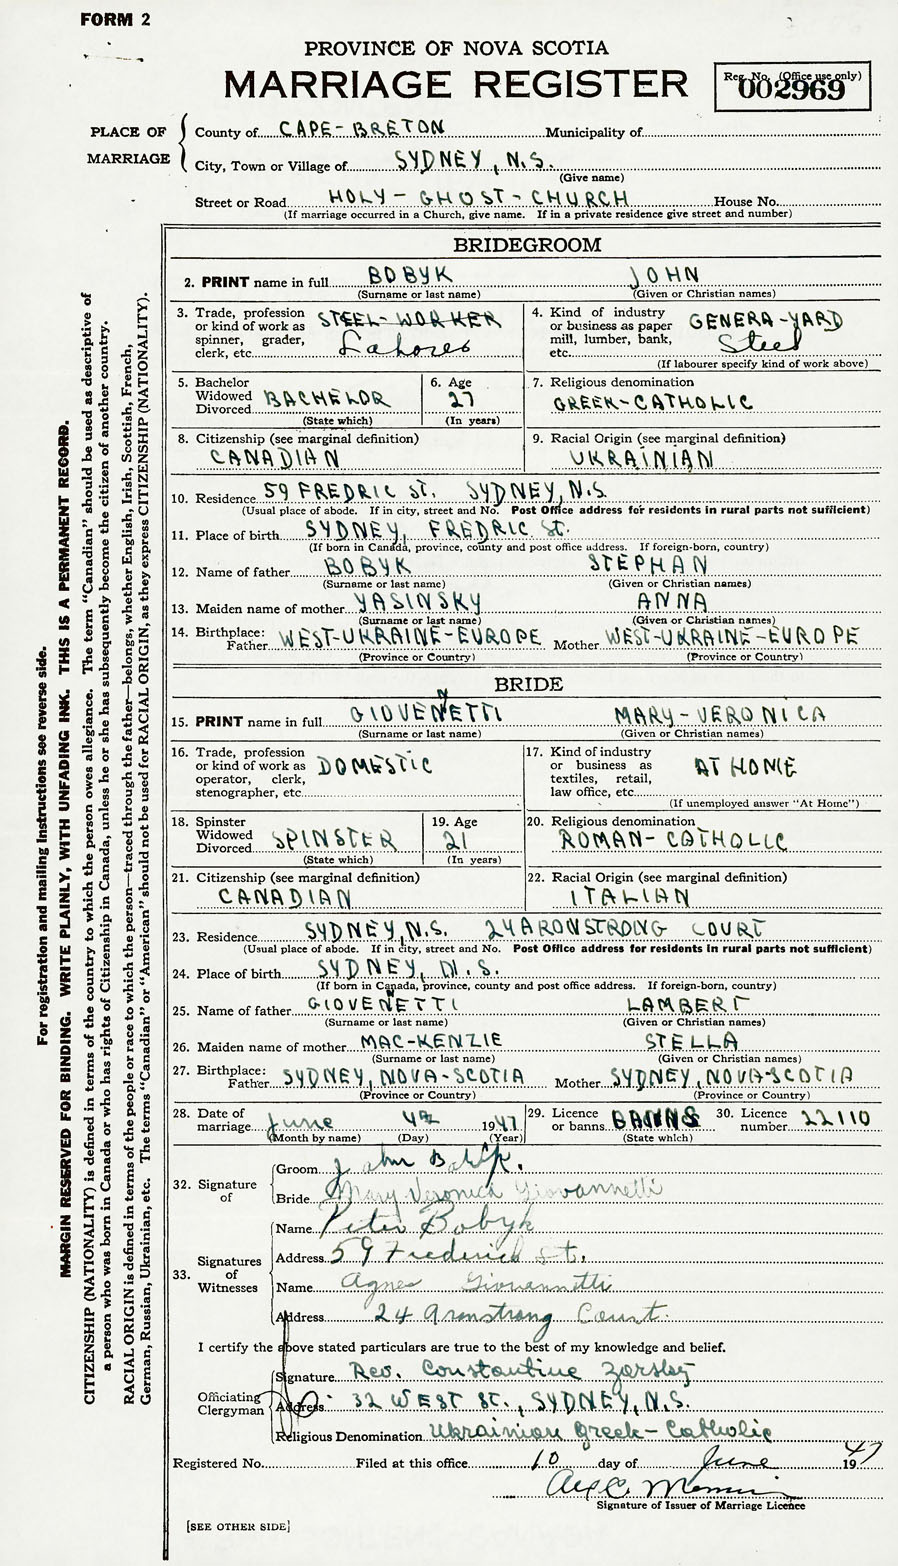 FORM 2
PROVINCE OF NOVA SCOTIA
MARRIAGE REGISTER
Reg. No. (Office use only)
002969
PLACE OF MARRIAGE
County of CAPE-BRETON Municipality of
City, Town or Village of SYDNEY, N.S.
(Give name)
Street or Road HOLY-GHOST-CHURCH House No.
(If marriage occurred in a Church, give name. If in a private residence give street and number)
BRIDEGROOM
2. PRINT name in full BOBYK JOHN
(Surname or last name) (Given or Christian names)
3. Trade, profession or kind of work as spinner, grader, clerk, etc. STEEL-WORKER Laborer
4. Kind of industry or business as paper mill, lumber, bank, etc. GENERA-YARD Steel
(If labourer specify kind of work above)
5. Bachelor Widowed Divorced BACHELOR
(State which)
6. Age 27
(In years)
7. Religious denomination
GREEK-CATHOLIC
8. Citizenship (see marginal definition)
CANADIAN
9. Racial Origin (see marginal definition)
UKRAINIAN
10. Residence 59 FREDRIC ST. SYDNEY, N.S.
(Usual place of abode. If in city, street and No. Post Office address for residents in rural parts not sufficient)
11. Place of birth SYDNEY, FREDRIC St.
(If born in Canada, province, county and post office address. If foreign-born, country)
12. Name of father BOBYK STEPHAN
(Surname or last name) (Given or Christian names)
13. Maiden name of mother YASINSKY ANNA
(Surname or last name) (Given or Christian names)
14. Birthplace: Father WEST-UKRAINE-EUROPE Mother WEST-UKRAINE-EUROPE
(Province or Country) (Province or Country)
BRIDE
15. PRINT name in full GIOVENETTI MARY-VERONICA
N
(Surname or last name) (Given or Christian names)
16. Trade, profession or kind of work as operator, clerk, stenographer, etc. DOMESTIC
17. Kind of industry or business as textiles, retail, law office, etc. AT HOME
(If unemployed answer "At Home")
18. Spinster Widowed Divorced SPINSTER
(State which)
19. Age 21
(In years)
20. Religious denomination
ROMAN-CATHOLIC
21. Citizenship (see marginal definition)
CANADIAN
22. Racial Origin (see marginal definition)
ITALIAN
23. Residence SYDNEY, N.S. 24 ARONSTRONG COURT
(Usual place of abode. If in city, street and No. Post Office address for residents in rural parts not sufficient)
24. Place of birth SYDNEY, N.S.
(If born in Canada, province, county and post office address. If foreign-born, country)
25. Name of father GIOVENETTI LAMBERT
(Surname or last name) (Given or Christian names)
26. Maiden name of mother MAC-KENZIE STELLA
(Surname or last name) (Given or Christian names)
27. Birthplace: Father SYDNEY, NOVA-SCOTIA Mother SYDNEY, NOVA-SCOTIA
(Province or Country) (Province or Country)
28. Date of marriage June 4th 1947
(Month by name) (Day) (Year)
29. Licence or banns BANNS
(State which)
30. Licence number 22110
32. Signature of
Groom John Bobyk.
Bride Mary Veronica Giovannetti
33. Signatures of Witnesses
Name Peter Bobyk
Address 59 Frederick St.
Name Agnes Giovannetti
Address 24 Armstrong Court.
I certify the above stated particulars are true to the best of my knowledge and belief.
Officiating Clergyman
Signature Rev. Constantine
Address 32 WEST St., SYDNEY, N.S.
Religious Denomination Ukrainian Greek-Catholic
Registered No. Filed at this office 10 day of June 1947
Alex C.
Signature of Issuer of Marriage Licence
[SEE OTHER SIDE]
For registration and mailing instructions see reverse side.
MARGIN RESERVED FOR BINDING. WRITE PLAINLY, WITH UNFADING INK. THIS IS A PERMANENT RECORD.
CITIZENSHIP (NATIONALITY) is defined in terms of the country to which the person owes allegiance. The term "Canadian" should be used as descriptive of
a person who was born in Canada or who has rights of Citizenship in Canada, unless he or she has subsequently become the citizen of another country.
RACIAL ORIGIN is defined in terms of the people or race to which the person—traced through the father—belongs, whether English, Irish, Scottish, French,
German, Russian, Ukrainian, etc. The terms "Canadian" or "American" should not be used for RACIAL ORIGIN, as they express CITIZENSHIP (NATIONALITY).